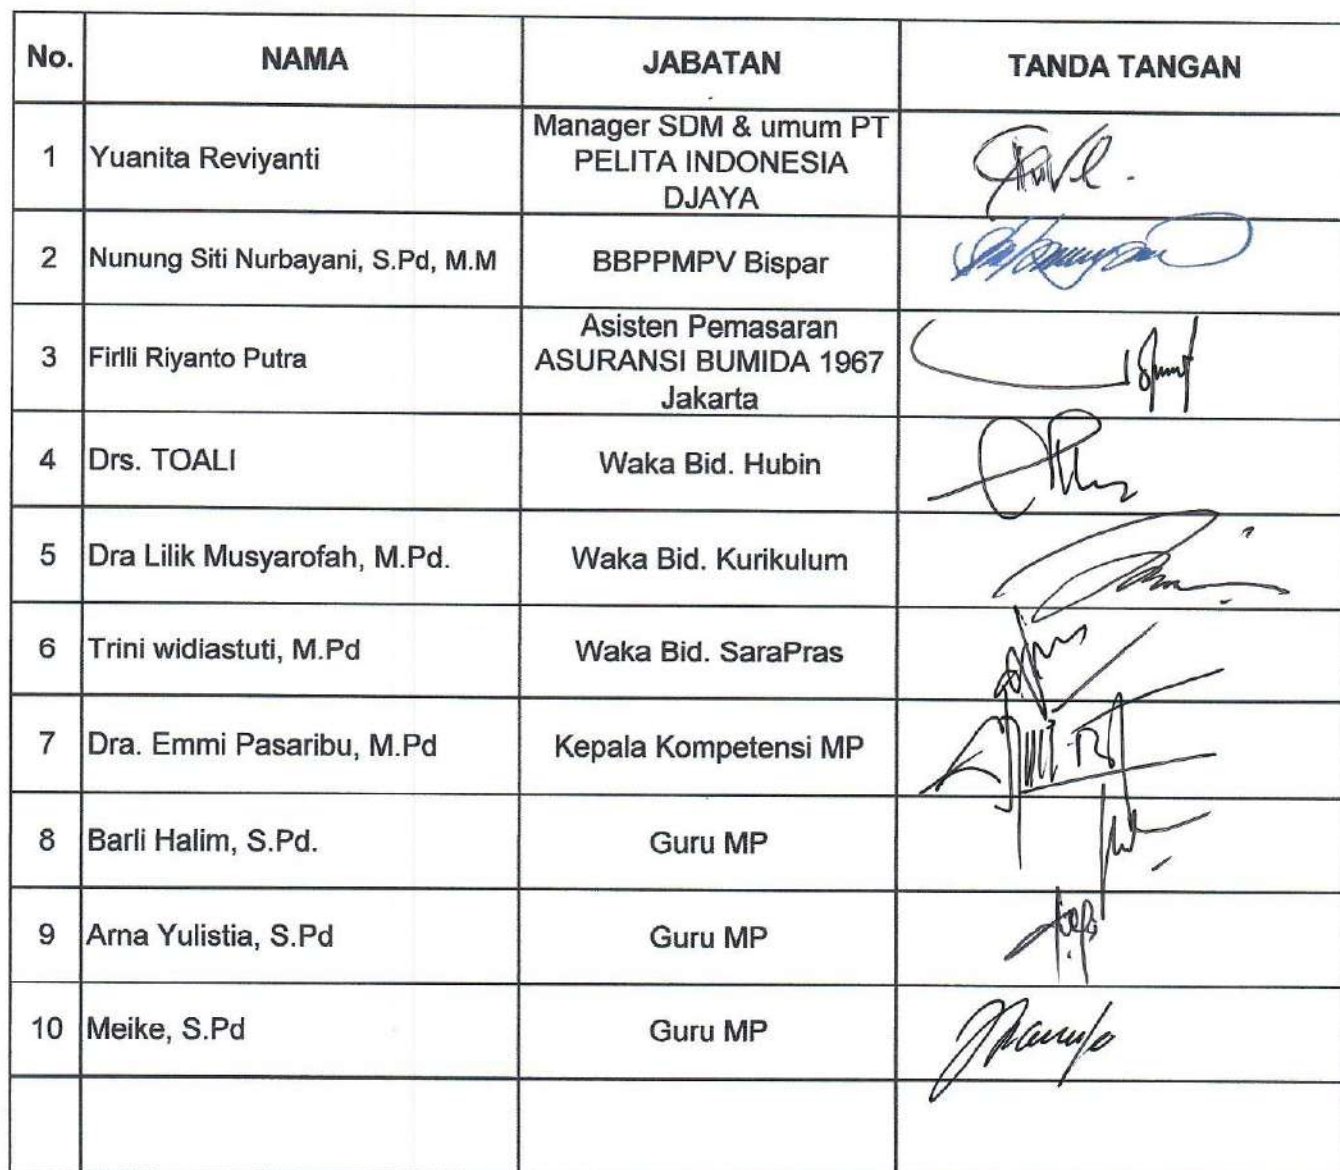 No. NAMA JABATAN TANDA TANGAN
1 Yuanita Reviyanti Manager SDM & umum PT
PELITA INDONESIA
DJAYA
2 Nunung Siti Nurbayani, S.Pd, M.M BBPPMPV Bispar
3 Firlli Riyanto Putra Asisten Pemasaran
ASURANSI BUMIDA 1967
Jakarta
4 Drs. TOALI Waka Bid. Hubin
5 Dra Lilik Musyarofah, M.Pd. Waka Bid. Kurikulum
6 Trini widiastuti, M.Pd Waka Bid. SaraPras
7 Dra. Emmi Pasaribu, M.Pd Kepala Kompetensi MP
8 Barli Halim, S.Pd. Guru MP
9 Arna Yulistia, S.Pd Guru MP
10 Meike, S.Pd Guru MP